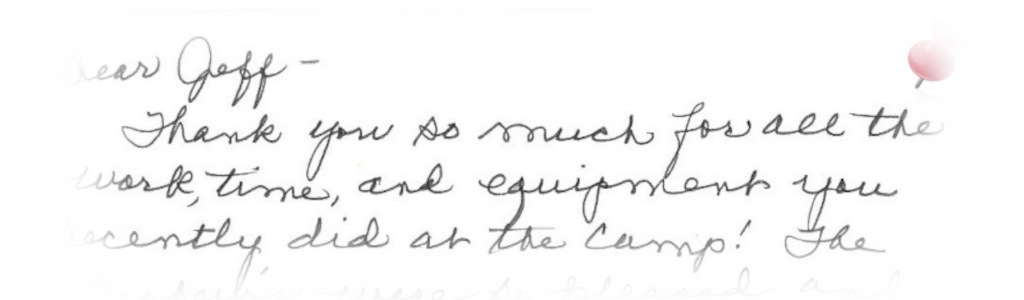 Dear Jeff -
Thank you so much for all the
work, time, and equipment you
recently did at the Camp! The
were so pleased and